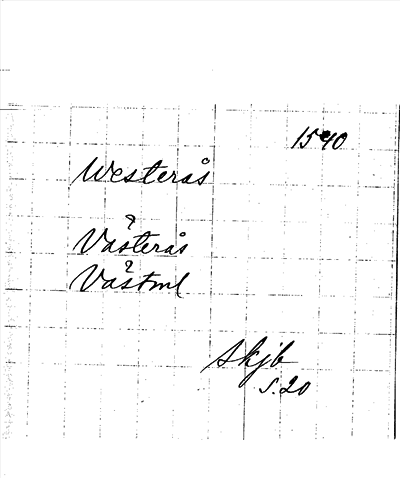 1540
Westerås
?
Västerås
?
Västml
skjb
s. 20